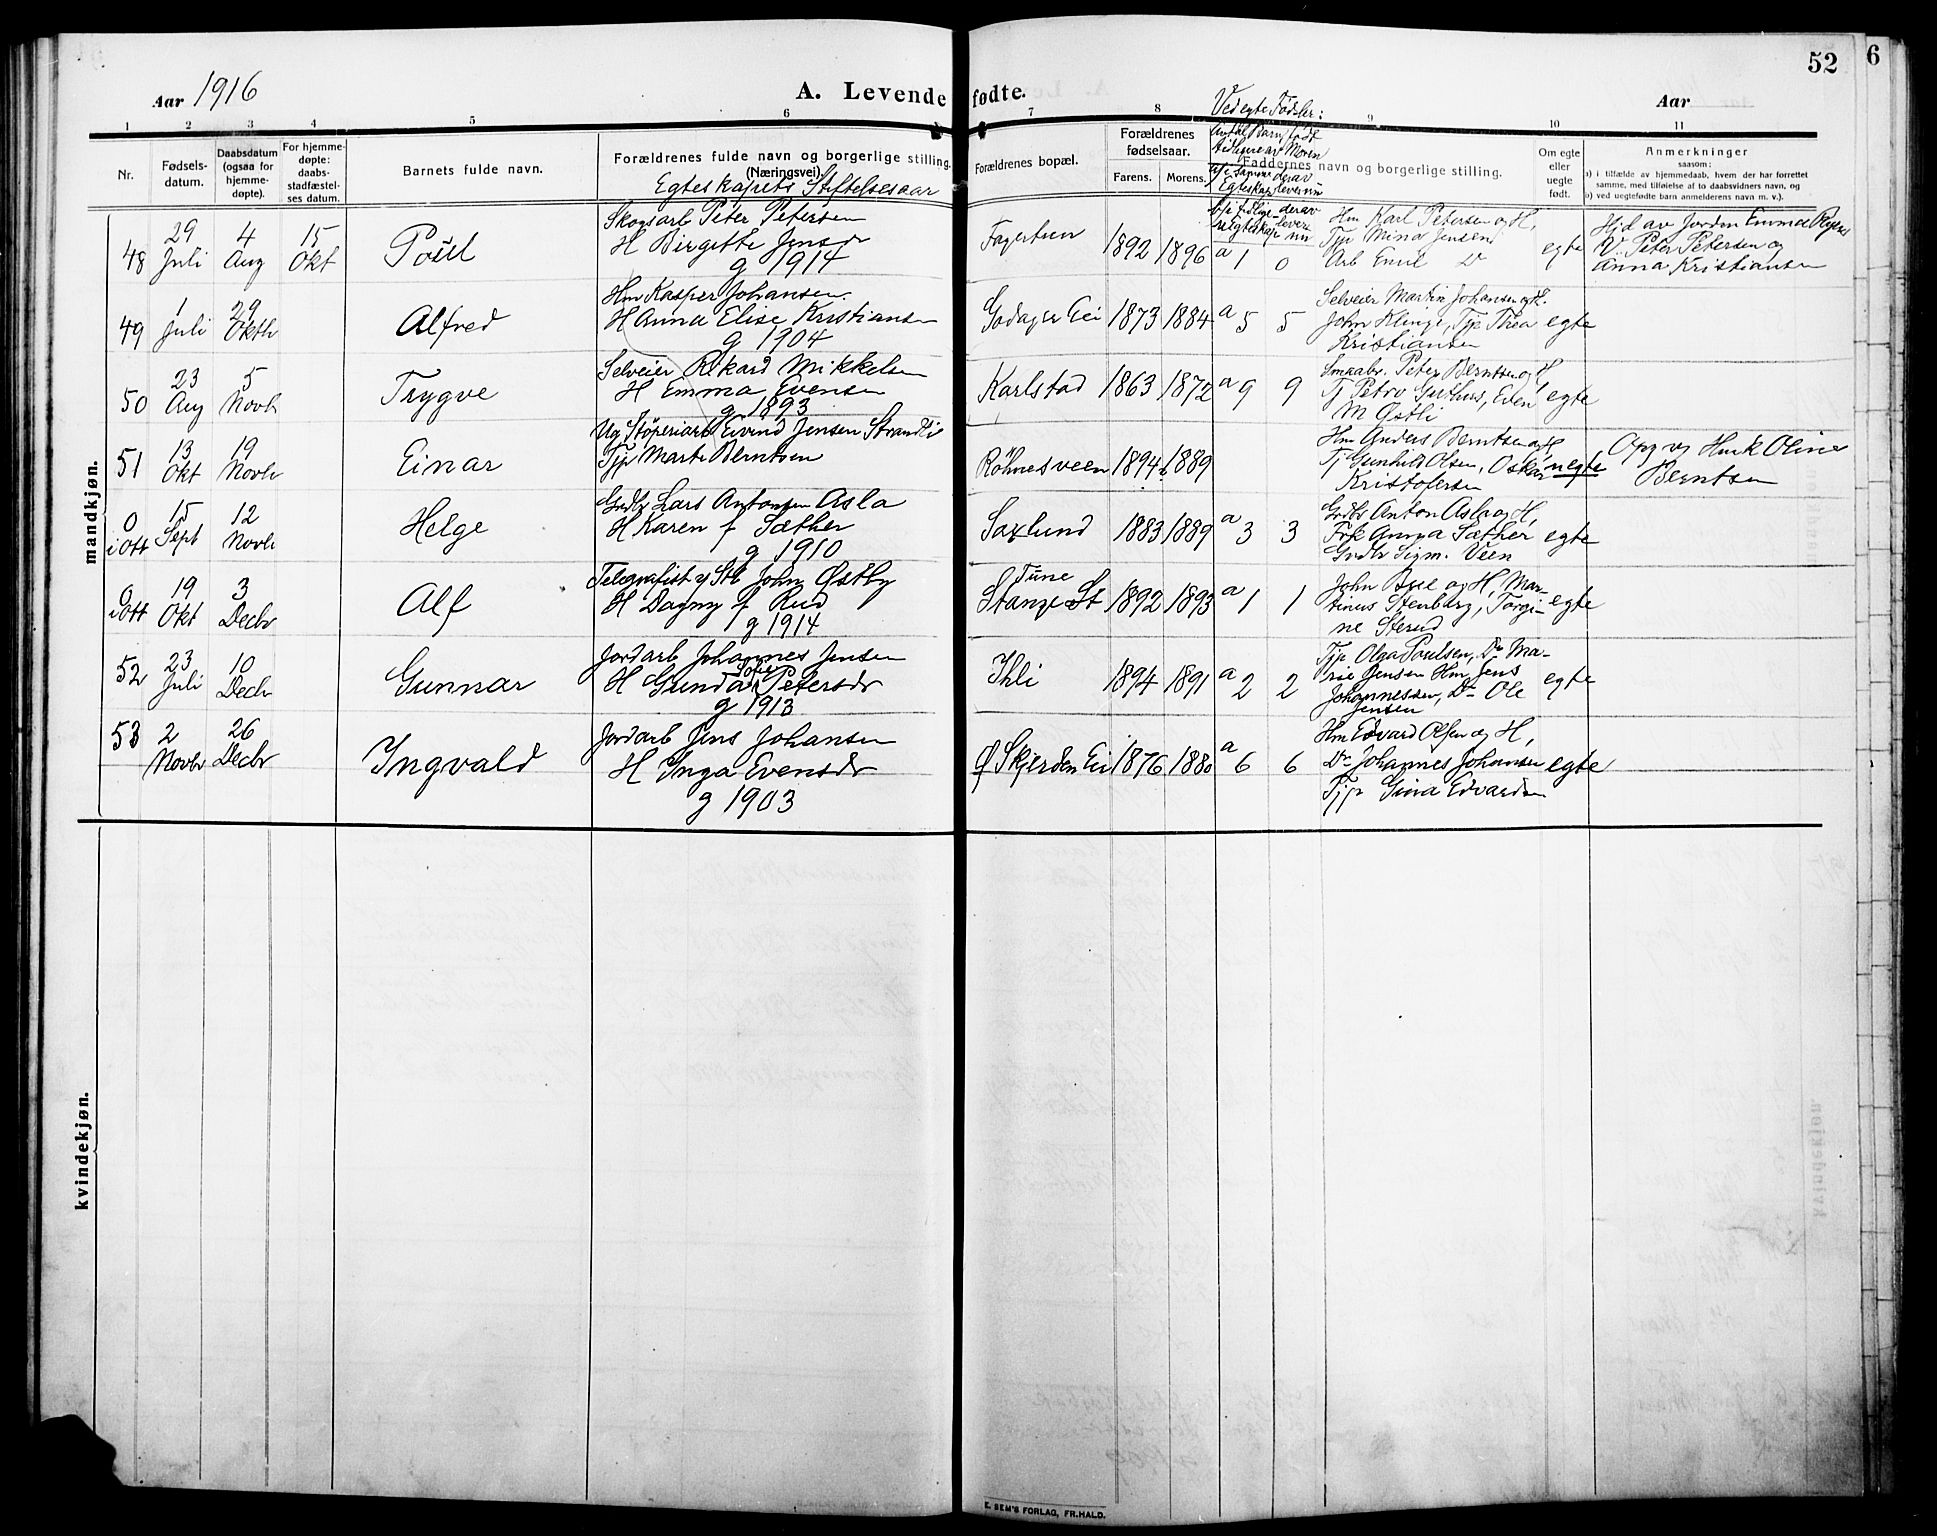 52
6
Aar 1916
A. Levende fødte.
Aar
1 2 3 4 5 6 7 8 9 10 11
Ved egte Fødsler:
Nr.
Fødsels-
datum.
Daabsdatum
(ogsaa for
hjemme-
døpte).
For hjemme-
døpte:
daabs-
stadfæstel-
ses datum.
Barnets fulde navn.
Forældrenes fulde navn og borgerlige stilling.
(Næringsvei).
Egteskapets Stiftelsesaar
Forældrenes bopæl.
Forældrenes
fødselsaar.
Farens. Morens.
Antal Barn født
tidligere av Moren
Faddernes navn og borgerlige stilling.
Om egte
eller
uegte
født.
Anmerkninger
saasom:
a) i tilfælde av hjemmedaab, hvem der har forrettet
samme, med tilføielse af to daabsvidners navn, og
b) ved uegtefødte barn anmelderens navn m. v.).
mandkjøn.
48
29
Juli
4
Aug
15
Okt
Poul
Skogsarb Peter Petersen
H Birgitte Jensdr
g 1914
1892 1896 a 1 0
Hm Karl Petersen og H,
Tjp Mina Jensen
Arb Emil Do
egte
Hjd av Jordm Emma
V. Peter Petersen og
Anna Kristiansen
49
1
Juli
29
Oktb
Alfred
Hm Kasper Johansen
H Anna Elise Kristiansen
g 1904
Godager Eie
1873 1884 a 5 5
Selveier Martin Johansen og H.
John Klinge, Tjp Thea
Kristiansen
egte
50
23
Aug
5
Novb
Trygve
Selveier Rikard Mikkelsen
H Emma Evensen
g 1893
Karlstad
1863 1872 a 9 9
Smaabr. Peter Berntsen og H
Tj Petro Guthus, Even
M Østli
egte
51
13
Okt
19
Novb
Einar
Ug Støperiarb Eivind Jensen Strandli
Tjp Marte Berntsen
Röhnesveen
1894 1889
Hm Anders Berntsen og H,
Tj Gunhild Olsen, Oskar
Kristofersen
uegte
Opg v Husk Oline
Berntsen
0
i Ott
15
Sept
12
Novb
Helge
Grdbr Lars Antonsen Asla
H Karen f Sæther
g 1910
Saxlund
1883 1889 a 3 3
Grdbr Anton Asla og H,
Frk Anna Sæther
Grdbr Sigm. Veen
egte
0
i Ott
19
Okt
3
Decbr
Alf
Telegrafist v Stb John Østby
H Dagny f Rud
g 1914
Tune
Stange St
1892 1893 a 1 1
John Bue og H, Mar-
tinus Stenberg, Torgi-
ne Sterud
egte
52
23
Juli
10
Decbr
Gunnar
Jordarb Johannes Jensen
H Gunda Sofie Petersdr
g 1913
Ihli
1894 1891 a 2 2
Tjp Olga Poulsen, Do Ma-
rie Jensen Hm Jens
Johannessen, Do Ole
Jensen
egte
53
2
Novbr
26
Decbr
Ingvald
Jordarb Jens Johansen
H Inga Evensdr
g 1903
Ø Skjerden Ei
1876 1880 a 6 6
Hm Edvard Olsen og H,
Do Johannes Johansen
Tjp Gina Edvardsen
egte
kvindekjøn.
E. SEM'S FORLAG, FR.HALD.